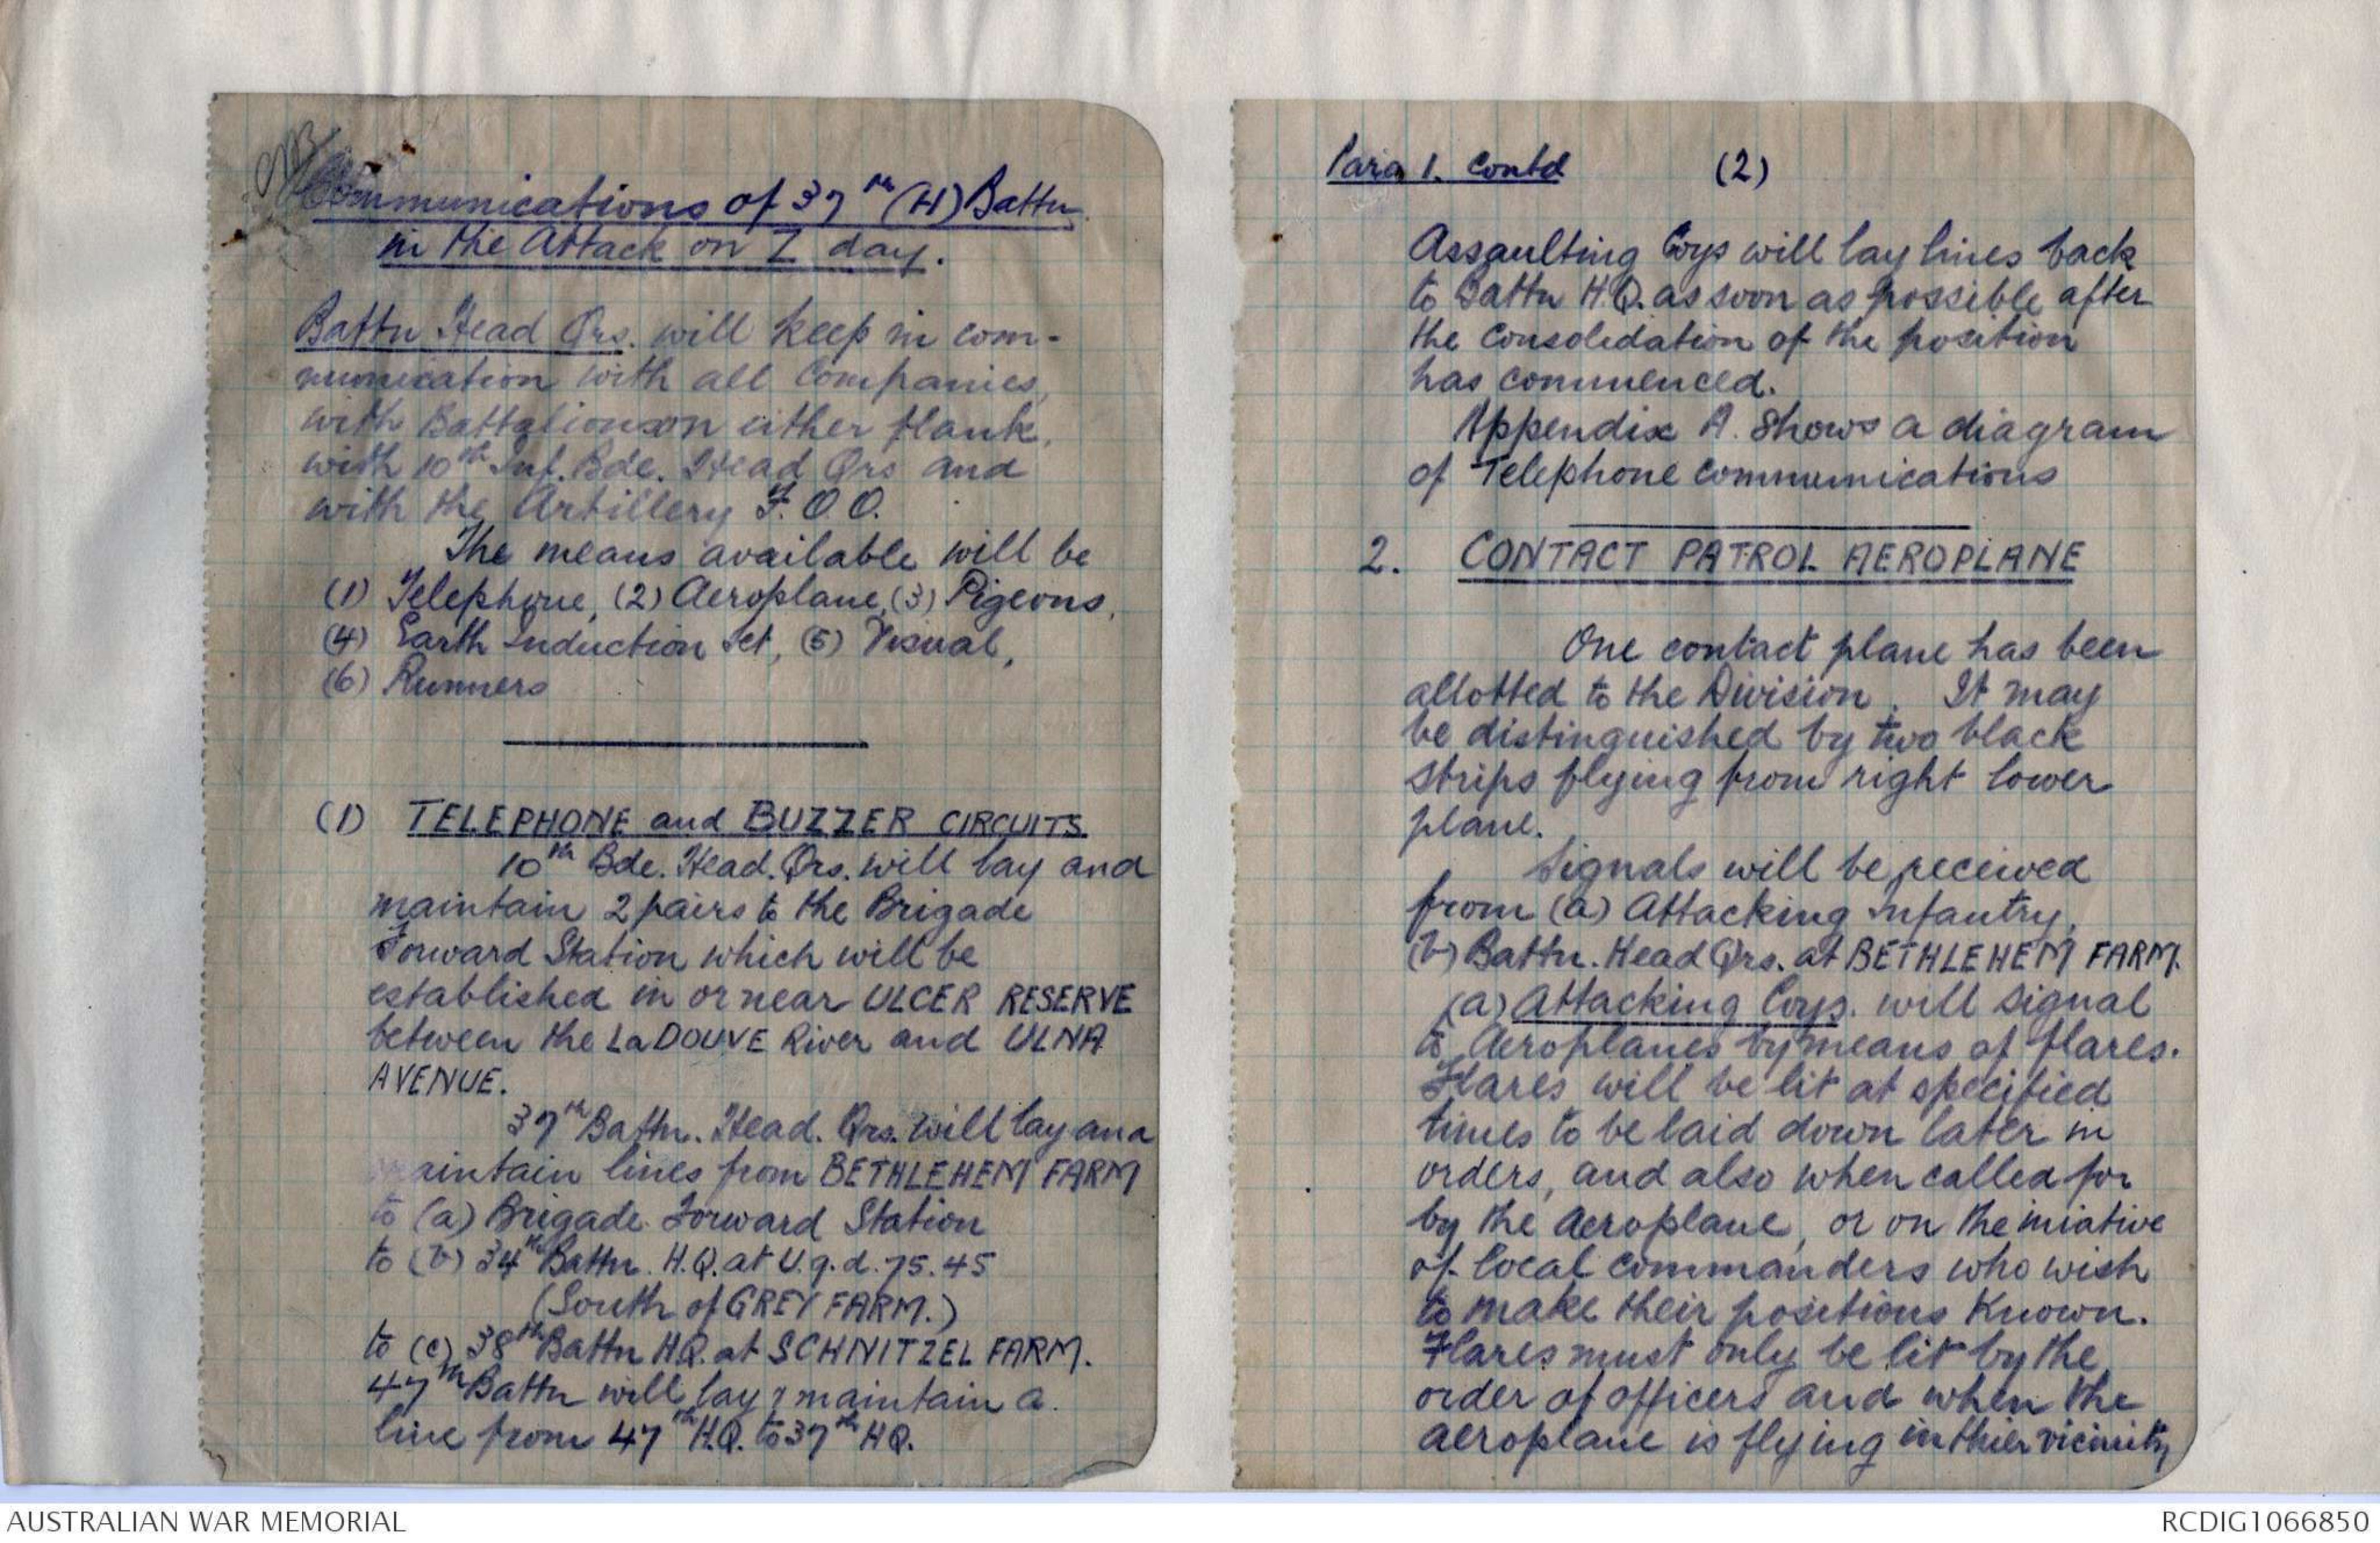 Communications of 37th (H) Battn
in the Attack on Z day.
Battn Head Qrs. will keep in com-
munication with all Companies,
with Battalions on either flank,
with 10th Inf. Bde. Head Qrs and
with the Artillery F.O.O.
The means available will be
(1) Telephone, (2) Aeroplane, (3) Pigeons,
(4) Earth Induction Set, (5) Visual,
(6) Runners
(1) TELEPHONE and BUZZER CIRCUITS
10th Bde. Head. Qrs. will lay and
maintain 2 pairs to the Brigade
Forward Station which will be
established in or near ULCER RESERVE
between the La DOUVE River and ULNA
AVENUE.
37th Battn. Head. Qrs. will lay and
maintain lines from BETHLEHEM FARM
to (a) Brigade Forward Station
to (b) 34th Battn. H.Q. at U.9.d.75.45
(South of GREY FARM.)
to (c) 38th Battn H.Q. at SCHNITZEL FARM.
47th Battn will lay & maintain a
line from 47th H.Q. to 37th HQ.
Para 1. contd (2)
Assaulting Coys will lay lines back
to Battn H.Q. as soon as possible after
the consolidation of the position
has commenced.
Appendix A. shows a diagram
of Telephone communications
2. CONTACT PATROL AEROPLANE
One contact plane has been
allotted to the Division. It may
be distinguished by two black
strips flying from right lower
plane.
Signals will be received
from (a) Attacking Infantry,
(b) Battn. Head Qrs. at BETHLEHEM FARM.
(a) Attacking Coys. will signal
to Aeroplanes by means of flares.
Flares will be lit at specified
times to be laid down later in
orders, and also when called for
by the Aeroplane, or on the iniative
of local commanders who wish
to make their positions known.
Flares must only be lit by the
order of officers and when the
aeroplane is flying in thier vicinity
AUSTRALIAN WAR MEMORIAL
RCDIG1066850